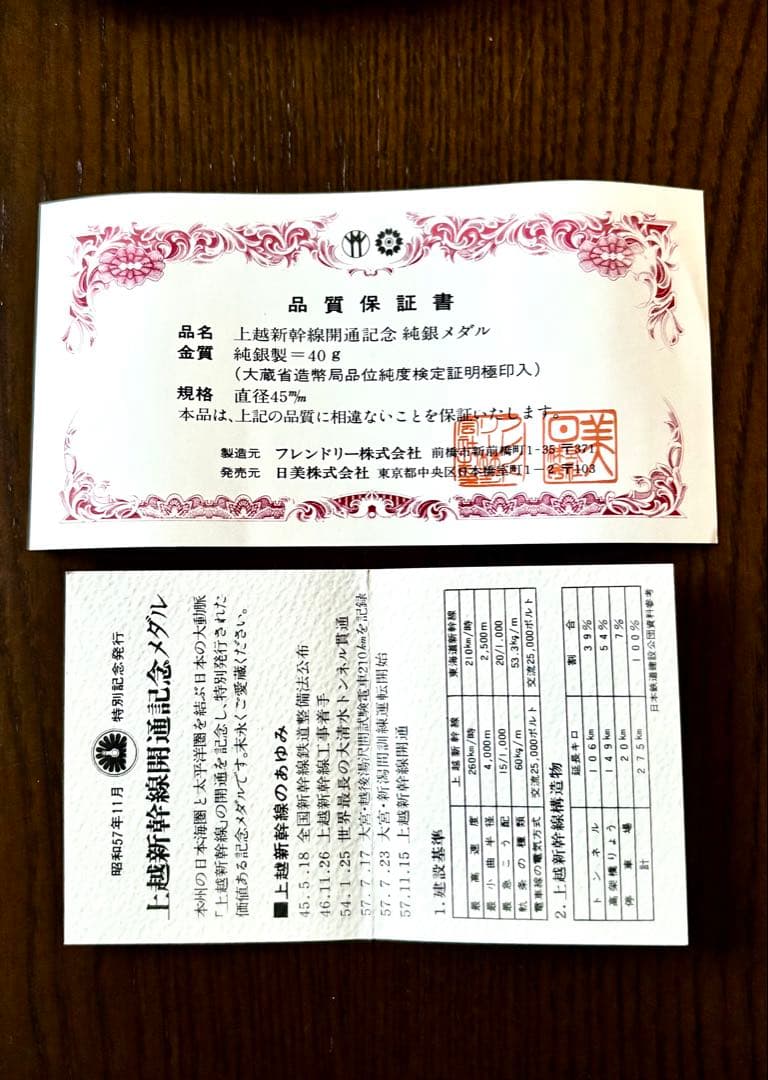 品質保証書
品名 上越新幹線開通記念 純銀メダル
金質 純銀製=40g
(大蔵省造幣局品位純度検定証明極印入)
規格 直径45m/m
本品は、上記の品質に相違ないことを保証いたします。
製造元 フレンドリー株式会社 前橋市新前橋町1-35 〒371
発売元 日美株式会社 東京都中央区日本橋室町1-2 〒103
昭和57年11月 特別記念発行
上越新幹線開通記念メダル
本州の日本海圏と太平洋圏を結ぶ日本の大動脈
「上越新幹線」の開通を記念し、特別発行された
価値ある記念メダルです。末永くご愛蔵ください。
■上越新幹線のあゆみ
45.5.18 全国新幹線鉄道整備法公布
46.11.26 上越新幹線工事着手
54.1.25 世界最長の大清水トンネル貫通
57.7.17 大宮・越後湯沢間試験電車210㎞を記録
57.7.23 大宮・新潟間訓練運転開始
57.11.15 上越新幹線開通
1.建設基準
上越新幹線 東海道新幹線
最高速度 260km/時 210km/時
最小曲半径 4,000m 2,500m
最急こう配 15/1,000 20/1,000
軌条の種類 60kg/m 53.3kg/m
電車線の電気方式 交流25,000ボルト 交流25,000ボルト
2.上越新幹線構造物
延長キロ 割合
トンネル 106km 39%
高架橋りょう 149km 54%
停車場 20km 7%
計 275km 100%
日本鉄道建設公団資料参考